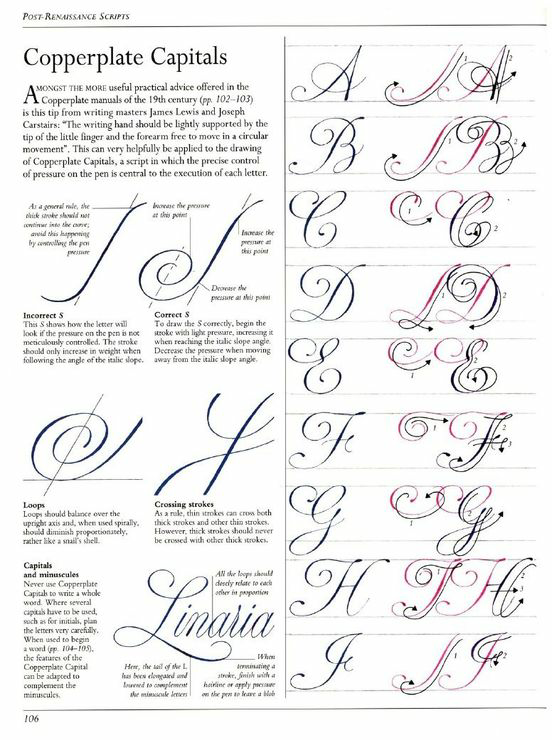 POST-RENAISSANCE SCRIPTS
Copperplate Capitals
AMONGST THE MORE useful practical advice offered in the
Copperplate manuals of the 19th century (pp. 102–103)
is this tip from writing masters James Lewis and Joseph
Carstairs: “The writing hand should be lightly supported by the
tip of the little finger and the forearm free to move in a circular
movement”. This can very helpfully be applied to the drawing
of Copperplate Capitals, a script in which the precise control
of pressure on the pen is central to the execution of each letter.
As a general rule, the
thick stroke should not
continue into the curve;
avoid this happening
by controlling the pen
pressure
Increase the pressure
at this point
Increase the
pressure at
this point
Decrease the
pressure at this point
Incorrect S
This S shows how the letter will
look if the pressure on the pen is not
meticulously controlled. The stroke
should only increase in weight when
following the angle of the italic slope.
Correct S
To draw the S correctly, begin the
stroke with light pressure, increasing it
when reaching the italic slope angle.
Decrease the pressure when moving
away from the italic slope angle.
Loops
Loops should balance over the
upright axis and, when used spirally,
should diminish proportionately,
rather like a snail's shell.
Crossing strokes
As a rule, thin strokes can cross both
thick strokes and other thin strokes.
However, thick strokes should never
be crossed with other thick strokes.
Capitals
and minuscules
Never use Copperplate
Capitals to write a whole
word. Where several
capitals have to be used,
such as for initials, plan
the letters very carefully.
When used to begin
a word (pp. 104–105),
the features of the
Copperplate Capital
can be adapted to
complement the
minuscules.
All the loops should
closely relate to each
other in proportion
Linaria
Here, the tail of the L
has been elongated and
lowered to complement
the minuscule letters
When
terminating a
stroke, finish with a
hairline or apply pressure
on the pen to leave a blob
A 1 A 2
B 1 B 2
C 1 C 2
D 1 D 2
E 1 E 2
F 1 F 2 3
G 1 G 2
H 1 H 2 3
I 1 I 2
106